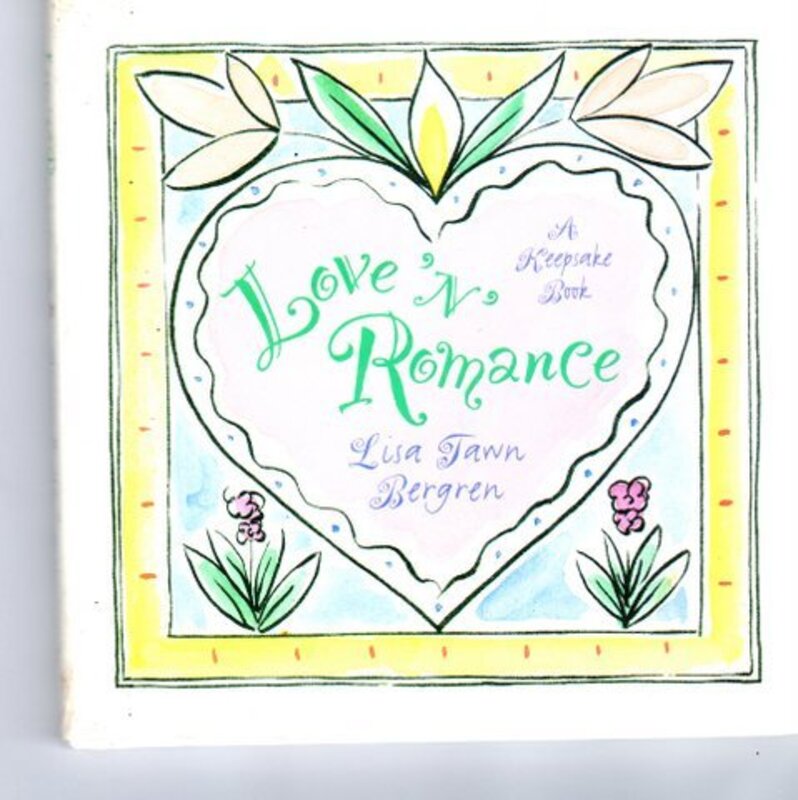 Love 'N'
Romance
A
Keepsake
Book
Lisa Tawn
Bergren